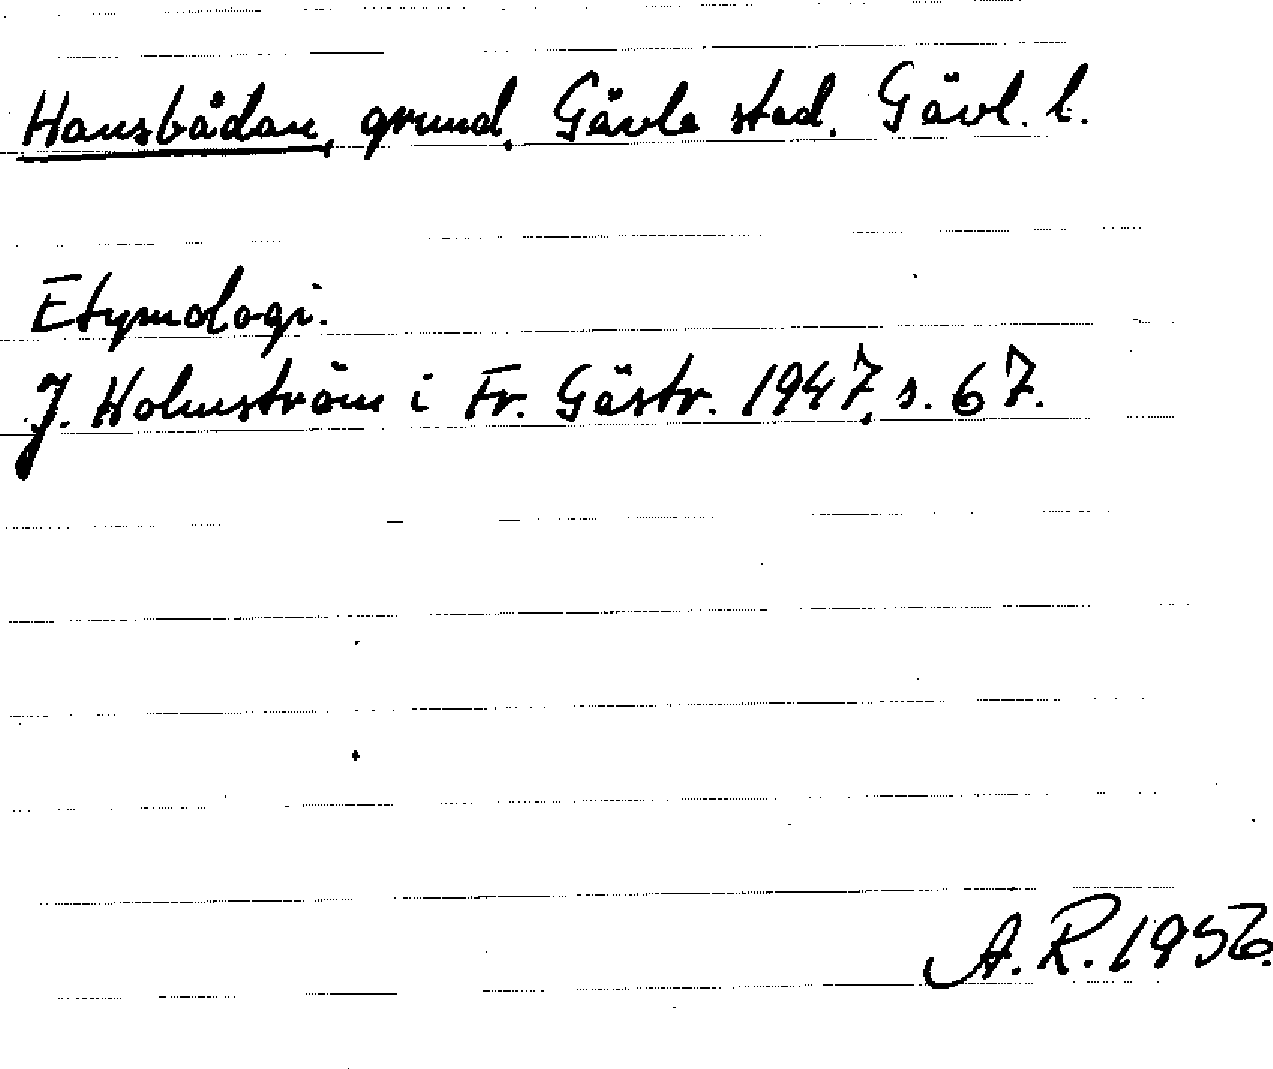 Hansbådan, grund, Gävle stad, Gävl. l.
Etymologi.
J. Holmström i Fr. Gästr. 1947, s. 67.
A.R. 1956.